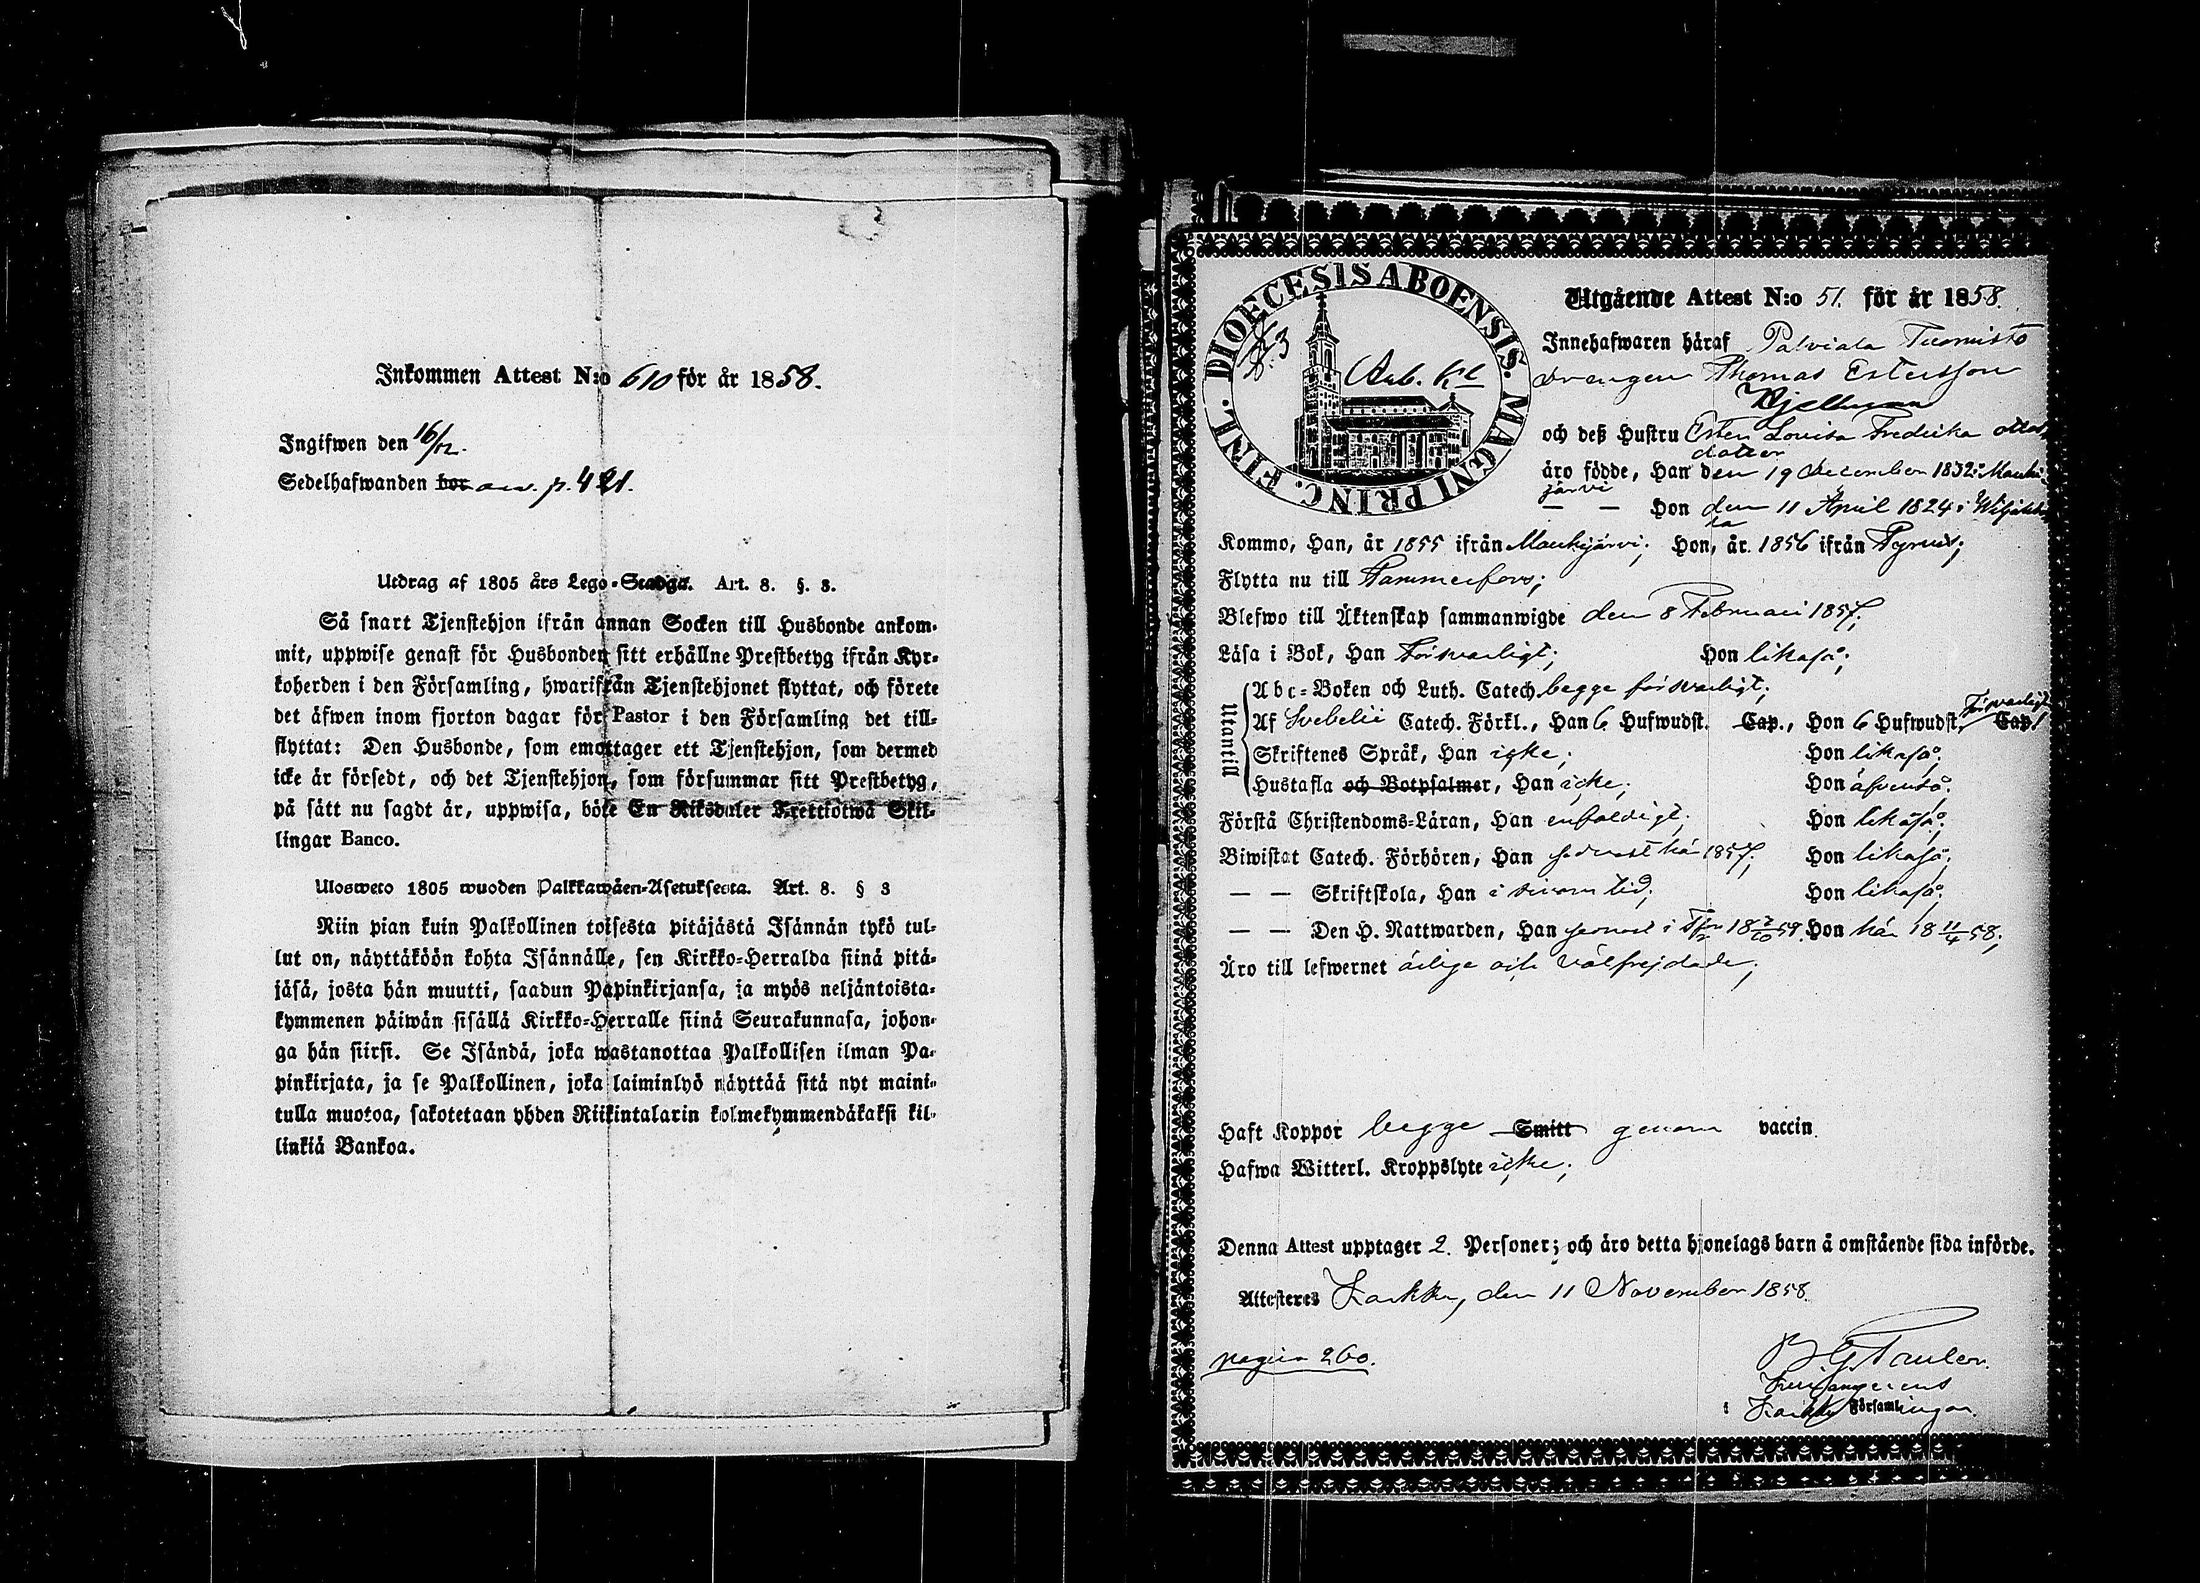 Inkommen Attest N:o 610 för år 1858.
Ingifwen den 16/12.
Sedelhafwanden bor anv. p. 421.
Utdrag af 1805 års Lego-Stadga. Art. 8. §. 3.
Så snart Tjenstehjon ifrån annan Socken till Husbonde ankom-
mit, uppwise genast för Husbonden sitt erhållne Prestbetyg ifrån Kyr-
koherden i den Församling, hwarifrån Tjenstehjonet flyttat, och förete
det äfwen inom fjorton dagar för Pastor i den Församling det till-
flyttat: Den Husbonde, som emottager ett Tjenstehjon, som dermed
icke är försedt, och det Tjenstehjon, som försummar sitt Prestbetyg,
på sätt nu sagdt är, uppwisa, böte En Riksdaler Trettiotwå Skil-
lingar Banco.
Ulosweto 1805 wuoden Palkkawäen-Asetuksesta. Art. 8. § 3
Niin pian kuin Palkollinen toisesta pitäjästä Isännän tykö tul-
lut on, näyttäköön kohta Isännälle, sen Kirkko-Herralda siinä pitä-
jäsä, josta hän muutti, saadun Papinkirjansa, ja myös neljäntoista-
kymmenen päiwän sisällä Kirkko-Herralle siinä Seurakunnasa, johon-
ga hän siirsi. Se Isändä, joka wastanottaa Palkollisen ilman Pa-
pinkirjata, ja se Palkollinen, joka laiminlyö näyttää sitä nyt maini-
tulla muotoa, sakotetaan yhden Riikintalarin kolmekymmendäkaksi kil-
linkiä Bankoa.
DIOECESIS ABOENSIS. MAGNI PRINC. FINL.
Utgående Attest N:o 51. för år 1858.
Innehafwaren häraf Palviala Tuomisto
drengen Thomas Ersersson
Kjellman
och deß Hustru Lovisa Fredrika Ottos
dotter
äro födde, Han den 19 december 1832 i Mouhi-
järvi
— — Hon den 11 April 1824 i
Kommo, Han, år 1855 ifrån Mouhijärvi; Hon, år 1856 ifrån Tyrvis;
Flytta nu till Tammerfors;
Blefwo till Äktenskap sammanwigde den 8 Februari 1857;
Läsa i Bok, Han försvarligt; Hon likaså;
Utantill
Abc-Boken och Luth. Catech. begge försvarligt;
Af Svebelii Catech. Förkl., Han 6 Hufwudst. Cap., Hon 6 Hufwudst. Cap. försvarligt
Skriftenes Språk, Han icke; Hon likaså;
Hustafla och Botpsalmer, Han icke; Hon äfvenså.
Förstå Christendoms-Läran, Han enfaldigt; Hon likaså;
Biwistat Catech. Förhören, Han senast här 1857; Hon likaså;
— — Skriftskola, Han i sinom tid; Hon likaså;
— — Den H. Nattwarden, Han senast i Hon här 18 11/4 58;
Äro till lefwernet ärlige och välfrejdade;
Haft Koppor begge Smitt genom vaccin
Hafwa Witterl. Kroppslyte icke;
Denna Attest upptager 2. Personer; och äro detta hjonelags barn å omstående sida införde.
Attesteres Karkku, den 11 November 1858.
pagina 260.
i Karkku Församlingar.